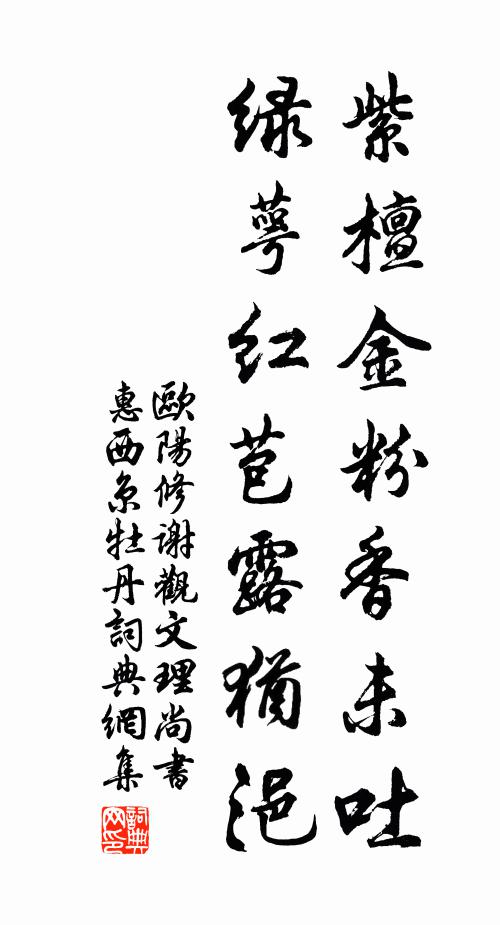 紫檀金粉香未吐
绿萼红苞露猶浥
歐陽修謝觀文理尚書
惠西京牡丹詞典網集
詞典
网印